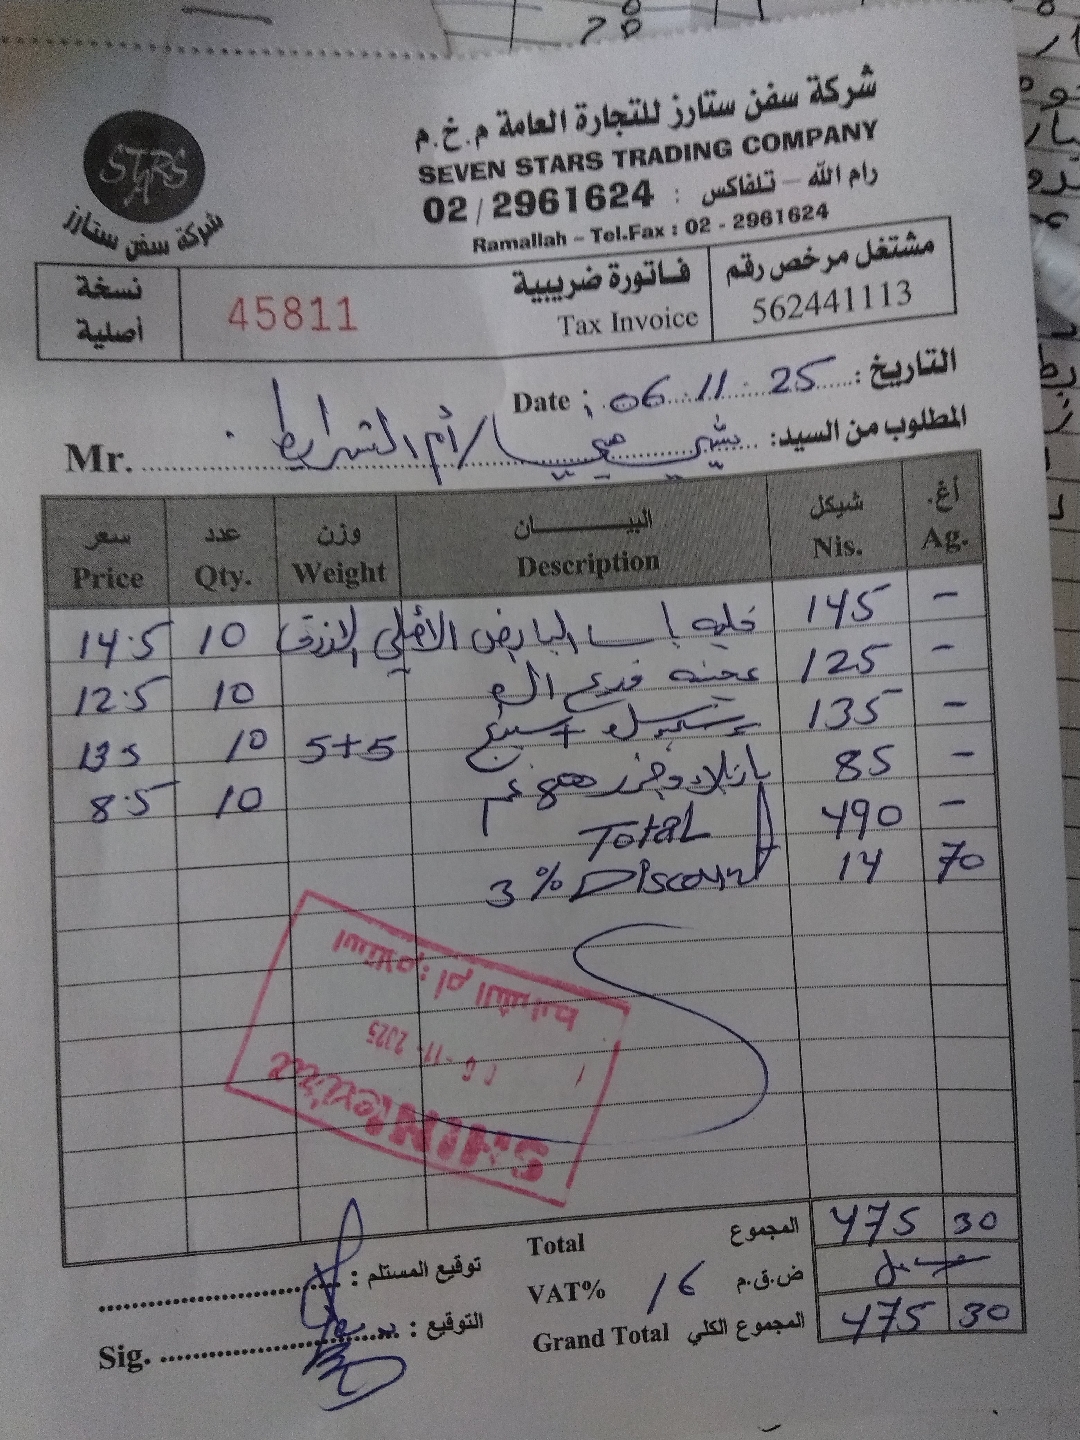 شركة سفن ستارز للتجارة العامة م.خ.م
SEVEN STARS TRADING COMPANY
رام الله - تلفاكس : 02/2961624
Ramallah - Tel.Fax : 02 - 2961624
STARS
شركة سفن ستارز
مشتغل مرخص رقم
562441113
فاتورة ضريبية
Tax Invoice
45811
نسخة أصلية
التاريخ : 06.11.25 Date :
المطلوب من السيد: / أم الشرايط Mr.
أغ. شيكل البيـــــان وزن عدد سعر
Ag. Nis. Description Weight Qty. Price
- 145 الازرق 10 14.5
- 125 عجينة 10 12.5
- 135 5+5 10 135
- 85 10 8.5
- 490 Total
70 14 3% Discount
استلام: ام الشرايط
06-11-2025
المجموع Total 475 30
ض.ق.م VAT% 16
المجموع الكلي Grand Total 475 30
توقيع المستلم :
التوقيع : Sig.